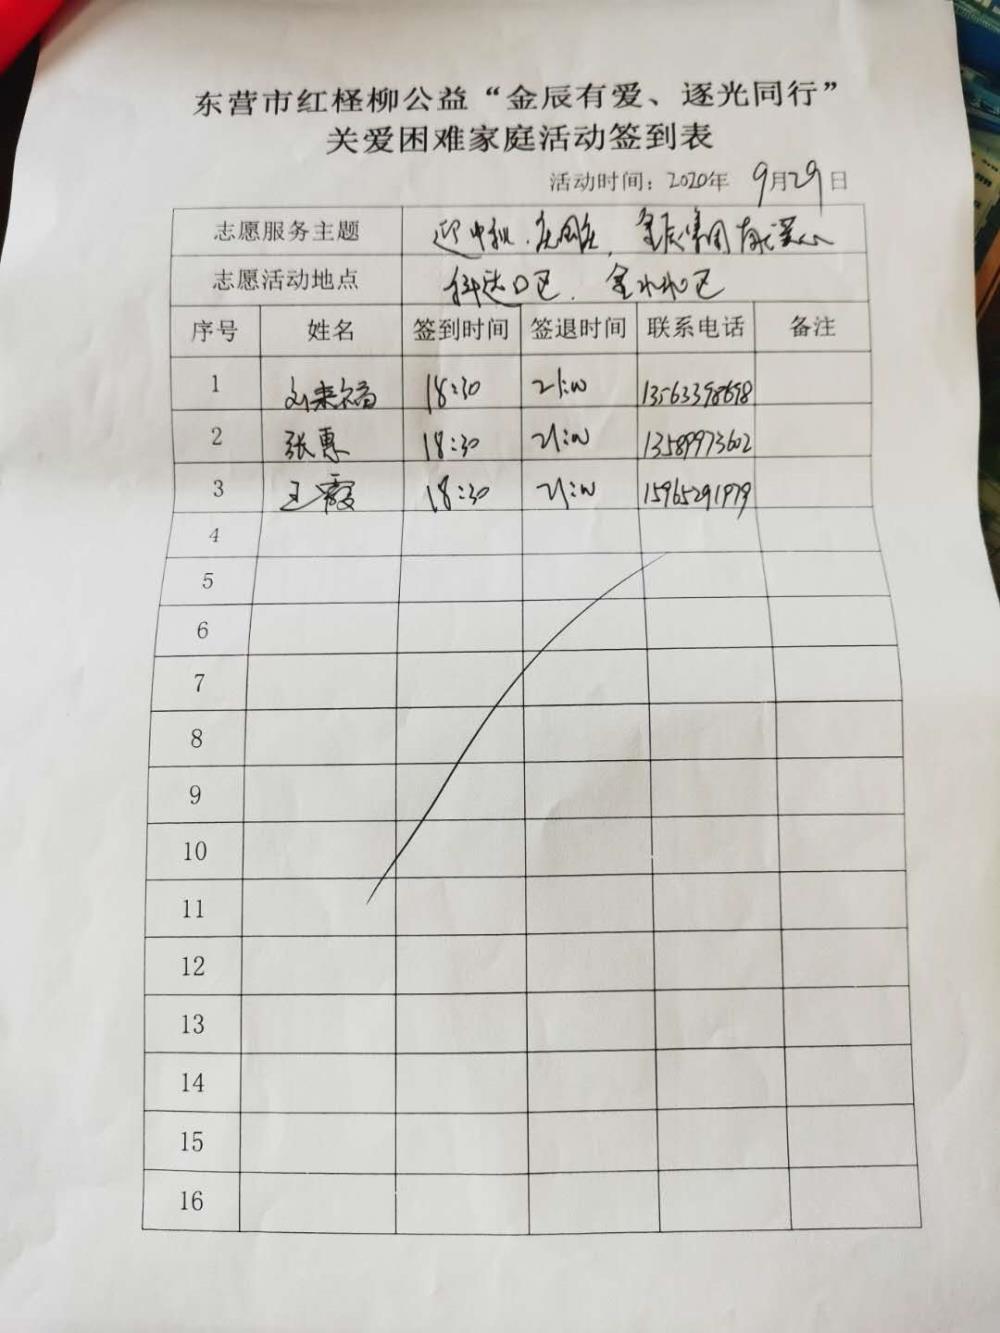 东营市红柽柳公益“金辰有爱、逐光同行”
关爱困难家庭活动签到表
活动时间：2020年 9月29日
志愿服务主题 迎中秋.庆国庆,金辰集团有爱心
志愿活动地点 科达小区.金水小区
序号 姓名 签到时间 签退时间 联系电话 备注
1 刘来福 18:30 21:00 13563398698
2 张惠 18:30 21:00 13589973602
3 王霞 18:30 21:00 15965291979
4
5
6
7
8
9
10
11
12
13
14
15
16